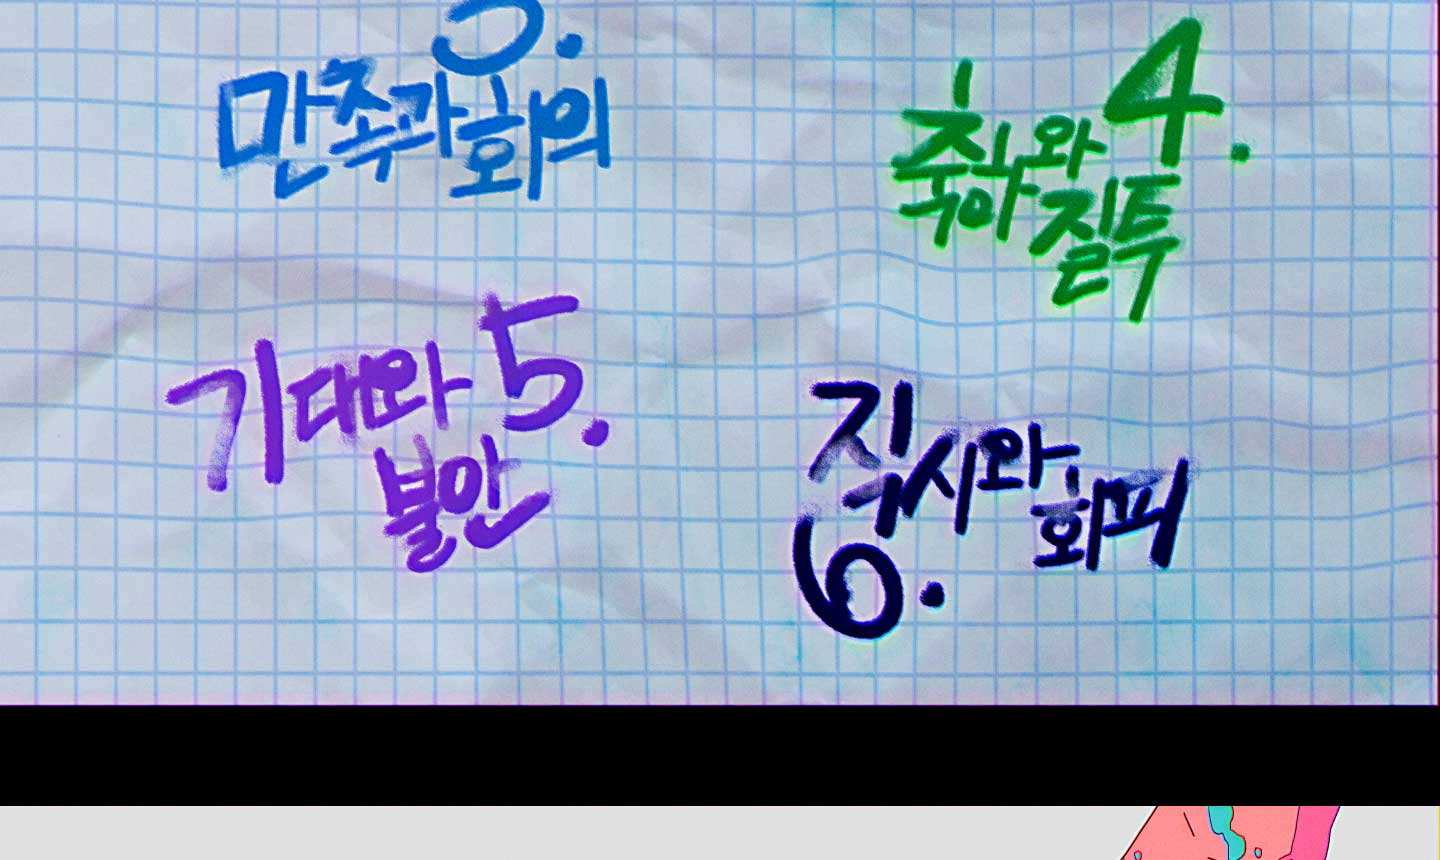 3.
만족과 회의
4.
축하와
질투
5.
기대와
불안
직시와 회피
6.